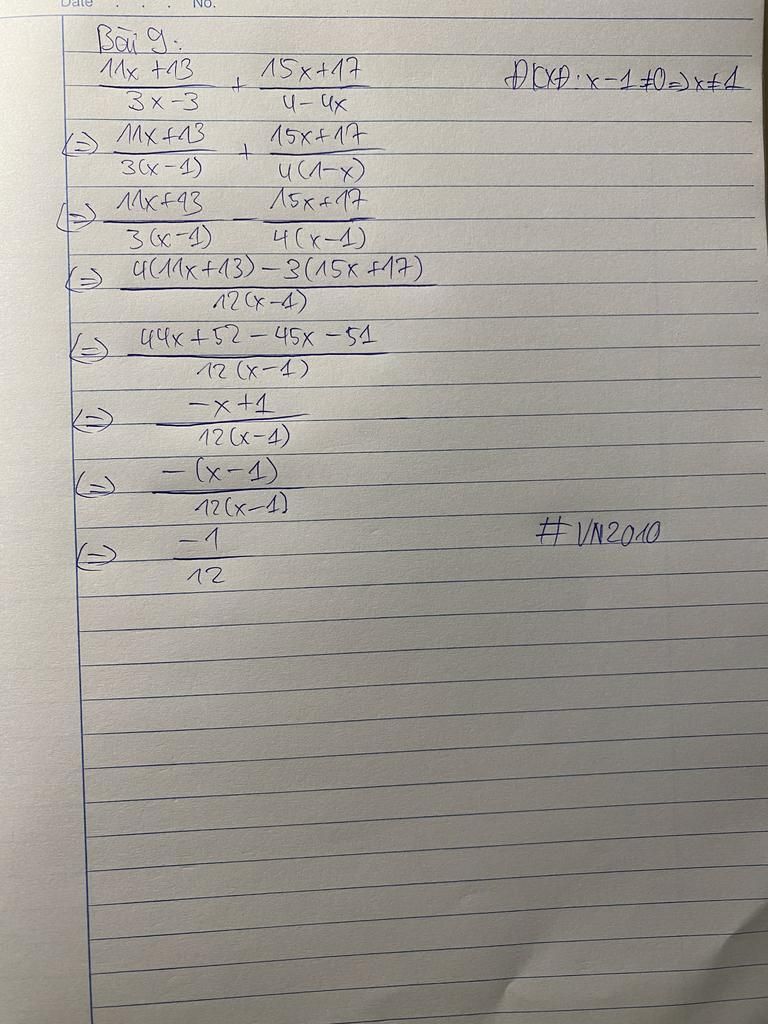 Date . . . No.
Bài 9:
11x+13/3x-3 + 15x+17/4-4x ĐKXĐ: x-1≠0=>x≠1
(=) 11x+13/3(x-1) + 15x+17/4(1-x)
(=) 11x+13/3(x-1) - 15x+17/4(x-1)
(=) 4(11x+13)-3(15x+17)/12(x-1)
(=) 44x+52-45x-51/12(x-1)
(=) -x+1/12(x-1)
(=) -(x-1)/12(x-1)
(=) -1/12
#VN2010